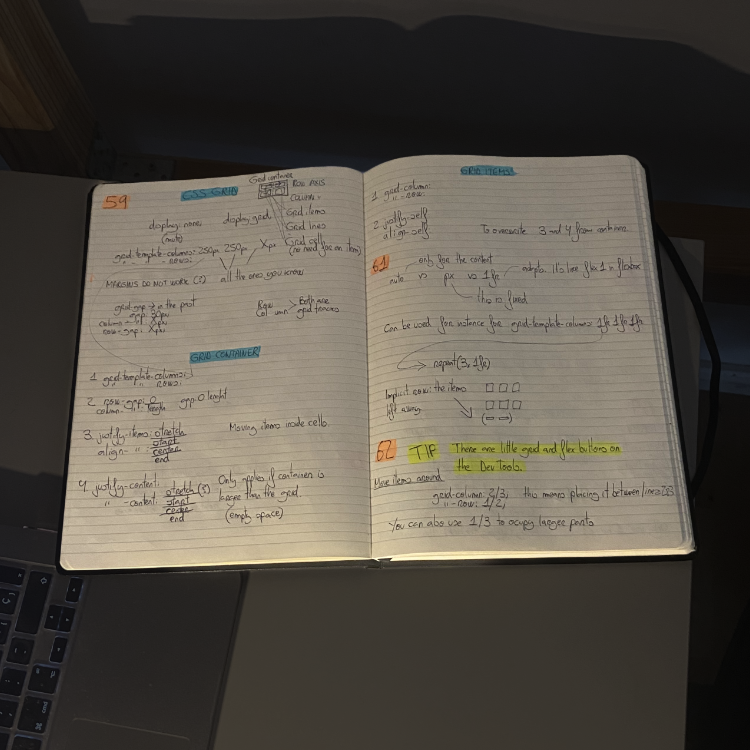 59
CSS GRID
Grid container
ROW AXIS
COLUMN
Grid items
Grid lines
Grid cells
(no need for an item)
display: none display: grid
(mute)
grid-template-columns: 250px 250px Xpx
" " rows:
all the ones you know
MARGINS DO NOT WORK (?)
grid-gap → in the past
gap: 30px
column-gap: Xpx
row-gap: Xpx
Row
Column > Both are
grid tracks
GRID CONTAINER
1 grid-template-columns:
" " rows:
2 row-gap: 0
column-gap: length gap: 0 lenght
3 justify-items: stretch
align- " : start
center
end
Moving items inside cells.
4 justify-content: stretch (?)
" -content: start
center
end
Only applies if container is
larger than the grid
(empty space)
GRID ITEMS
1 grid-column:
" -row:
2 justify-self
align-self
To overwrite 3 and 4 from container.
61
only for the content
auto vs px vs 1fr
adapts. It's like flex 1 in flexbox
this is fixed
Can be used for instance for grid-template-columns 1fr 1fr 1fr
repeat(3, 1fr)
Implicit row: the items
left away
62 TIP There are little grid and flex buttons on
the DevTools.
Move items around
grid-column: 2/3; this means placing it between lines 2-3
" -row: 1/2;
You can also use 1/3 to ocupy larger parts
cmd